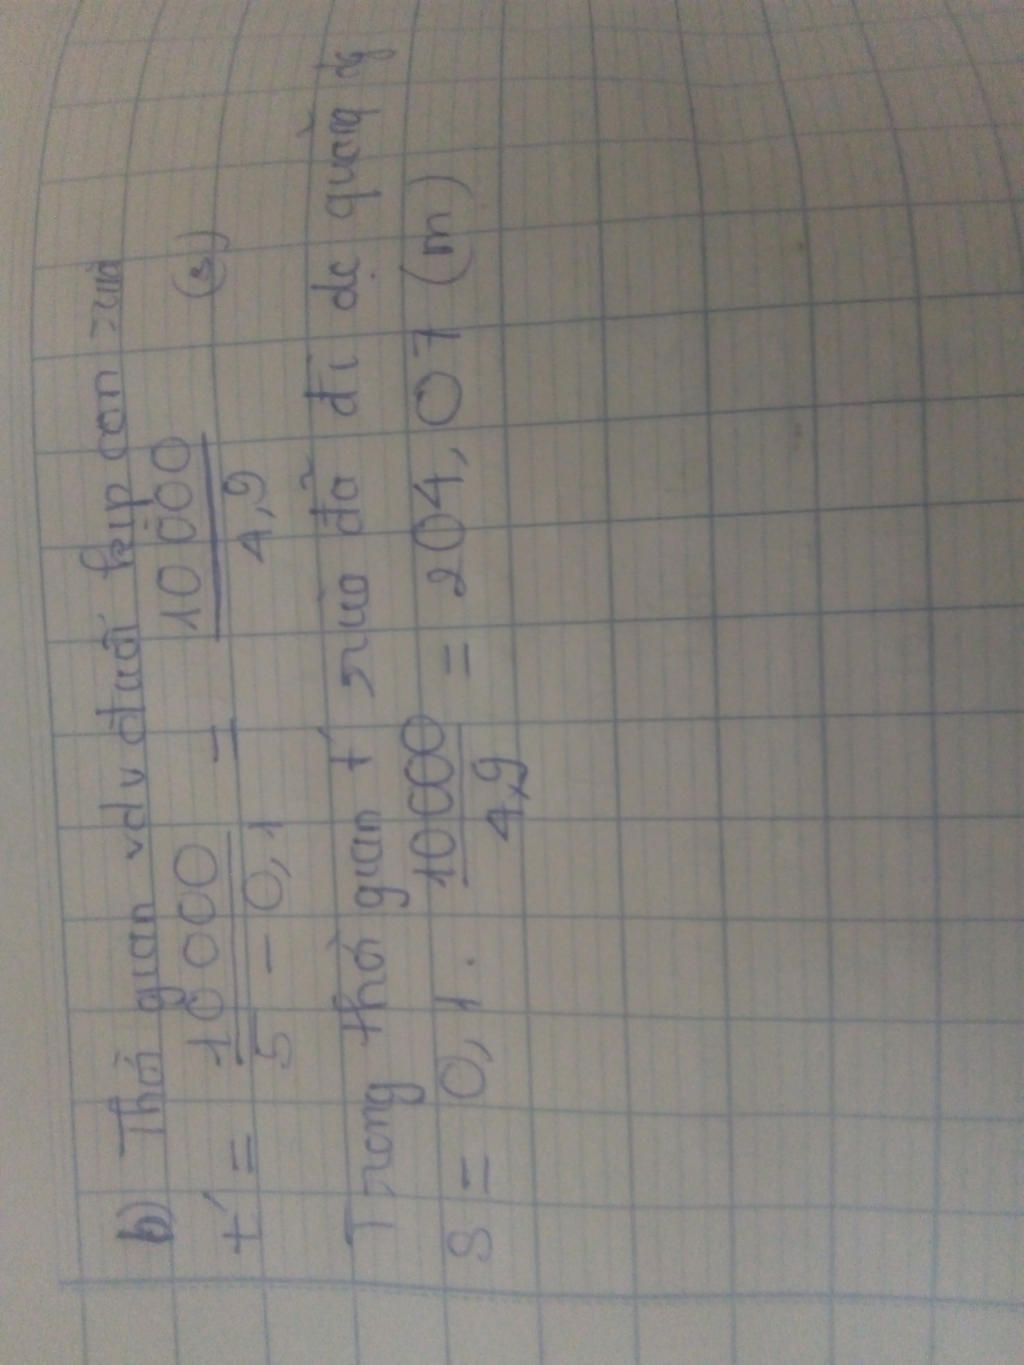 b) Thời gian vđv đuổi kịp con rùa
t' = 10 000 / 5 - 0,1 = 10 000 / 4,9 (s)
Trong thời gian t' rùa đã đi đc quãng đg
S = 0,1 . 10000 / 4,9 = 204,07 (m)